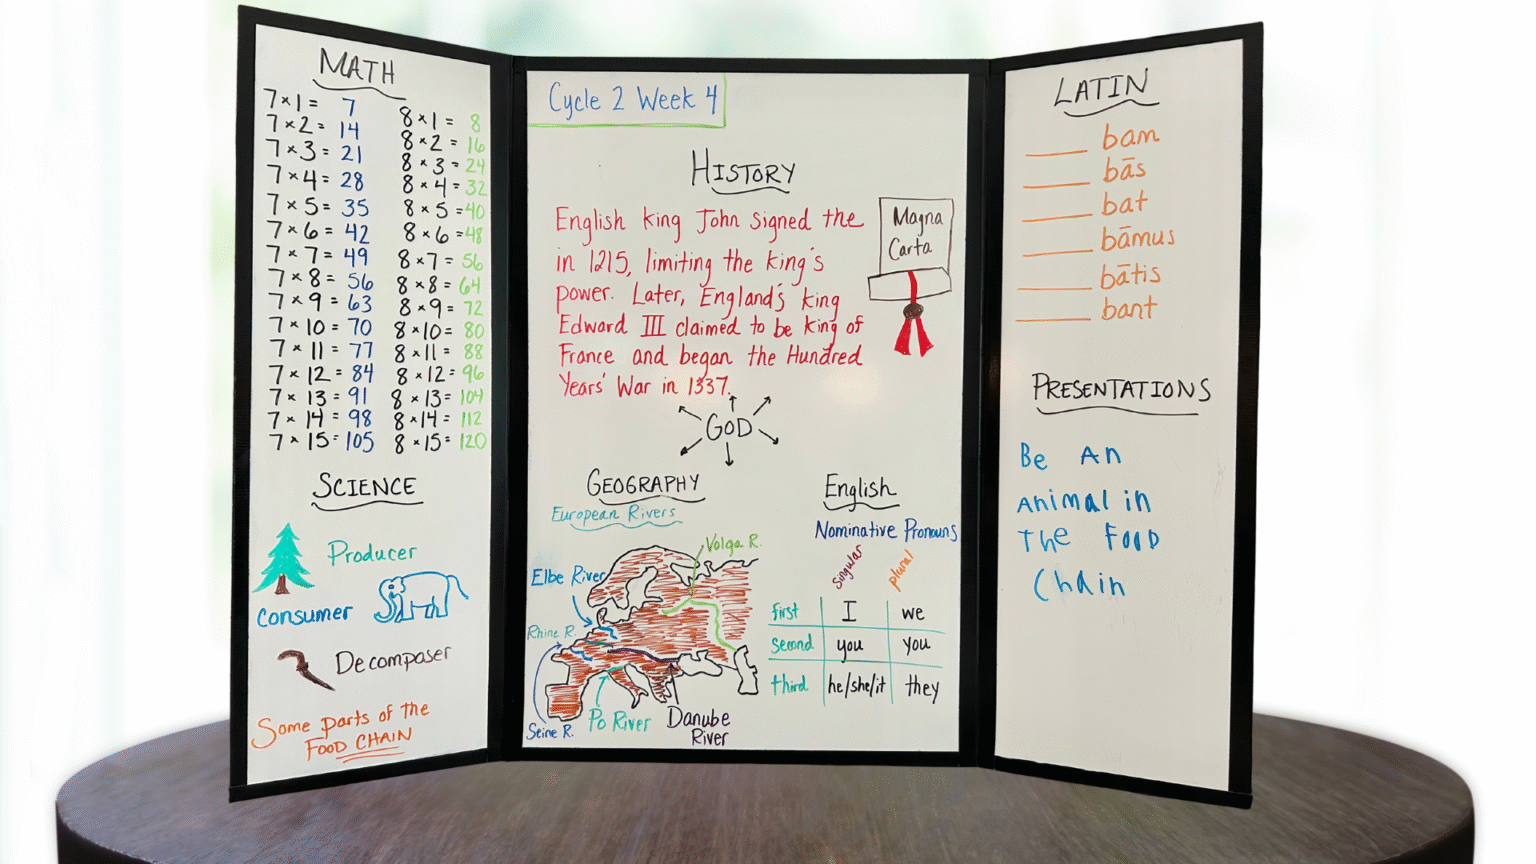 MATH
7 × 1 = 7
7 × 2 = 14
7 × 3 = 21
7 × 4 = 28
7 × 5 = 35
7 × 6 = 42
7 × 7 = 49
7 × 8 = 56
7 × 9 = 63
7 × 10 = 70
7 × 11 = 77
7 × 12 = 84
7 × 13 = 91
7 × 14 = 98
7 × 15 = 105
8 × 1 = 8
8 × 2 = 16
8 × 3 = 24
8 × 4 = 32
8 × 5 = 40
8 × 6 = 48
8 × 7 = 56
8 × 8 = 64
8 × 9 = 72
8 × 10 = 80
8 × 11 = 88
8 × 12 = 96
8 × 13 = 104
8 × 14 = 112
8 × 15 = 120
SCIENCE
Producer
Consumer
Decomposer
Some parts of the
FOOD CHAIN
Cycle 2 Week 4
HISTORY
English king John signed the
in 1215, limiting the king's
power. Later, England's king
Edward III claimed to be king of
France and began the Hundred
Years' War in 1337.
Magna
Carta
GOD
GEOGRAPHY
European Rivers
Volga R.
Elbe River
Rhine R.
Seine R.
Po River
Danube
River
English
Nominative Pronouns
singular plural
first I we
second you you
third he/she/it they
LATIN
____ bam
____ bās
____ bat
____ bāmus
____ bātis
____ bant
PRESENTATIONS
Be An
Animal in
The Food
Chain